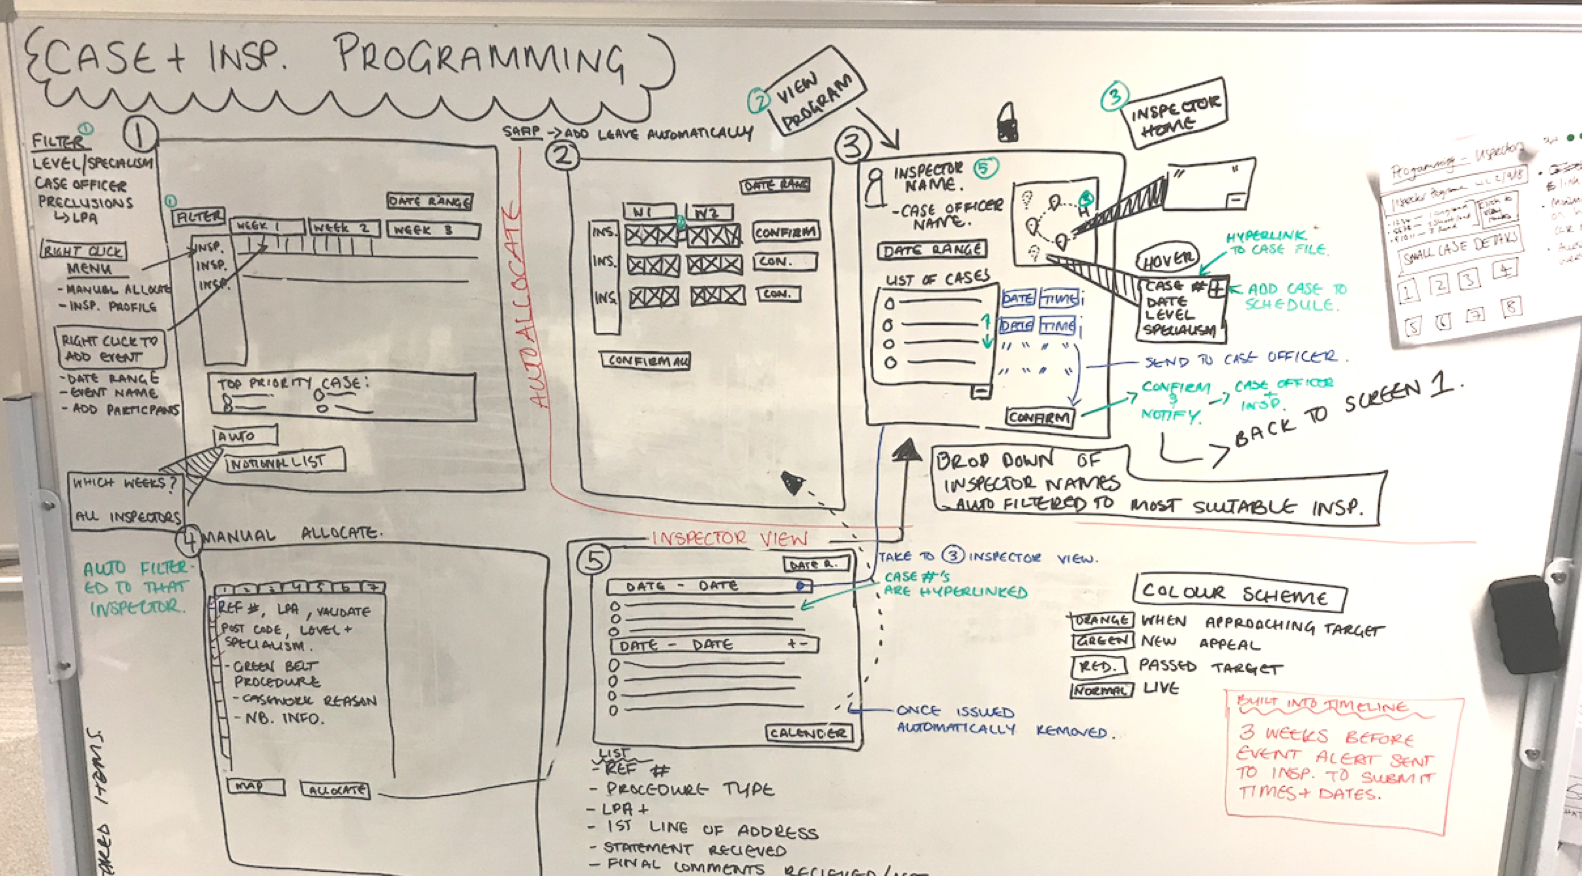 CASE + INSP. PROGRAMMING
FILTER 1
LEVEL/SPECIALISM
CASE OFFICER
PRECLUSIONS
↳ LPA
RIGHT CLICK
MENU
- MANUAL ALLOCATE
- INSP. PROFILE
RIGHT CLICK TO
ADD EVENT
- DATE RANGE
- EVENT NAME
- ADD PARTICPANTS
WHICH WEEKS?
ALL INSPECTORS
1
DATE RANGE
1
FILTER
WEEK 1
WEEK 2
WEEK 3
INSP.
INSP.
INSP.
TOP PRIORITY CASE:
AUTO
NOTIONAL LIST
AUTO ALLOCATE
SAAP → ADD LEAVE AUTOMATICALLY
2
DATE RANG
W1
W2
INS.
CONFIRM
INS.
CON.
INS.
CON.
CONFIRM ALL
2 VIEW
PROGRAM
3
INSPECTOR
NAME. 5
- CASE OFFICER
NAME.
DATE RANGE
LIST OF CASES
DATE TIME
DATE TIME
" " " "
" " " "
CONFIRM
H
3 INSPECTOR
HOME
" "
HOVER
HYPERLINK
TO CASE FILE.
CASE # +
DATE
LEVEL
SPECIALISM
ADD CASE TO
SCHEDULE.
SEND TO CASE OFFICER.
CONFIRM
&
NOTIFY.
→ CASE OFFICER
+
INSP.
BACK TO SCREEN 1.
DROP DOWN OF
INSPECTOR NAMES
- AUTO FILTERED TO MOST SUITABLE INSP.
Programming - Inspector
SMALL CASE DETAILS
1 2 3 4
5 6 7 8
4 MANUAL ALLOCATE.
AUTO FILTER-
ED TO THAT
INSPECTOR.
1 2 3 4 5 6 7
REF #, LPA, VALIDATE
POST CODE, LEVEL +
SPECIALISM.
- GREEN BELT
PROCEDURE
- CASEWORK REASON
- NB. INFO.
MAP
ALLOCATE
INSPECTOR VIEW
5
DATE R.
DATE - DATE
DATE - DATE + -
CALENDER
TAKE TO 3 INSPECTOR VIEW.
CASE #'S
ARE HYPERLINKED
ONCE ISSUED
AUTOMATICALLY REMOVED.
LIST
- REF #
- PROCEDURE TYPE
- LPA +
- 1ST LINE OF ADDRESS
- STATEMENT RECIEVED
- FINAL COMMENTS RECIEVED
COLOUR SCHEME
ORANGE WHEN APPROACHING TARGET
GREEN NEW APPEAL
RED. PASSED TARGET
NORMAL LIVE
BUILT INTO TIMELINE
3 WEEKS BEFORE
EVENT ALERT SENT
TO INSP. TO SUBMIT
TIMES + DATES.